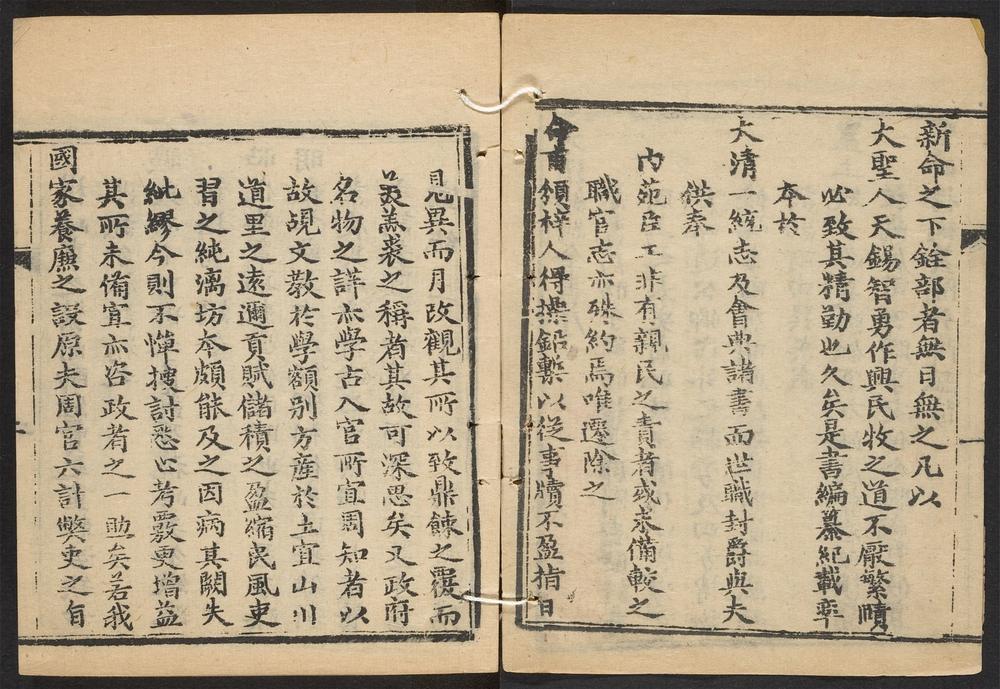 新命之下銓部者無日無之凡以
大聖人天錫智勇作興民牧之道不厭繁賾
必致其精勤也久矣是書編纂紀載率
本於
大清一統志及會典諸書而世職封爵與夫
供奉
內苑臣工非有親民之責者或未備較之
職官志亦殊約焉唯遷除之
令甫頒梓人得操鉛槧以從事牘不盈指日
見異而月改觀其所以致鼎餗之覆而
羔裘之稱者其故可深思矣又政府
名物之詳亦學古入官所宜周知者以
故覘文教於學額别方產於土宜山川
道里之遠邇貢賦儲積之盈縮民風吏
習之純漓坊本頗能及之因病其闕失
紕繆今則不憚搜討悉心考覈更增益
其所未備寔亦咨政者之一助矣若我
國家養廉之設原夫周官六計獘吏之旨